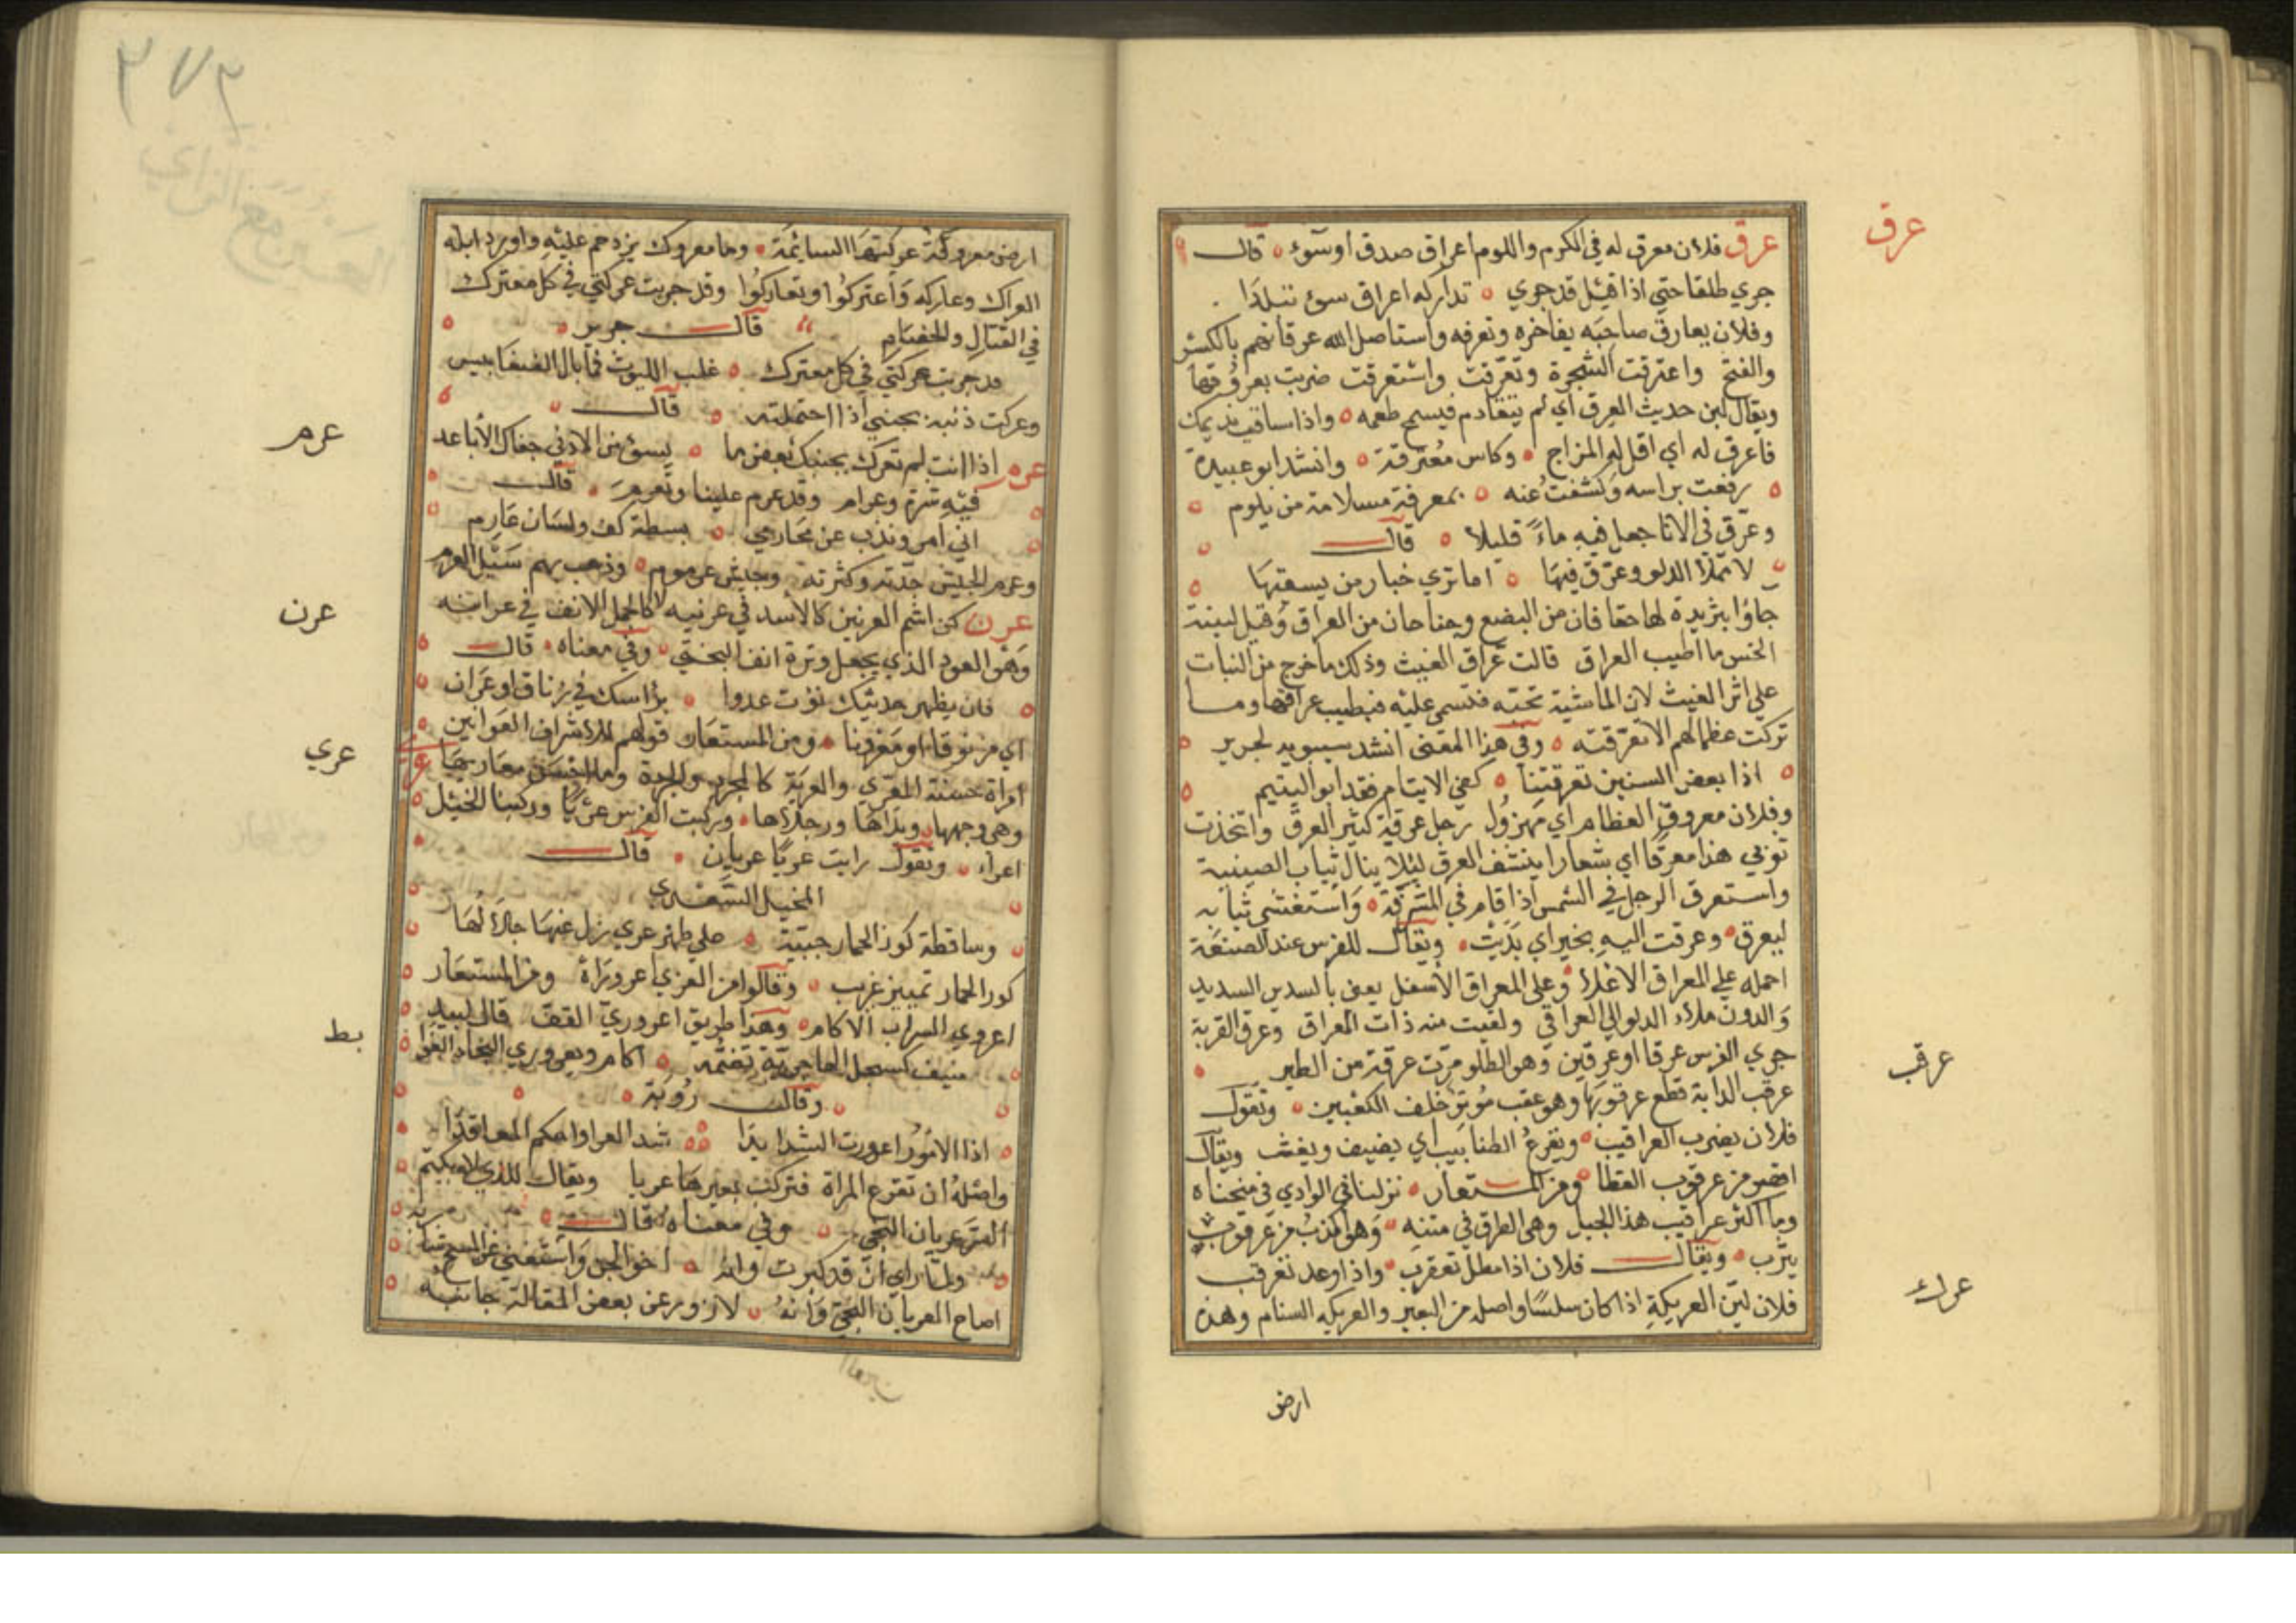 عرق
عرق فلان معرق له في الكرم واللوم اعراق صدق اوسوء قال
جري طلقا حتى اذا قيل قد جري تداركه اعراق سوء فبلدا
وفلان يعارق صاحبه يفاخره ونعرفه واستاصل الله عرقاتهم بالكسر
والفتح واعترقت الشجرة وتعرقت واستعرقت ضربت بعروقها
ويقال لبن حديث العرق اي لم يتقادم فيسمج طعمه واذا ساقيت نديمك
فاعرق له اي اقل له المزاج وكاس معرقة وانشد ابو عبيدة
رفعت براسه وكشفت عنه بمعرقة مسلامة من يلوم
وعرق في الانا جعل فيه ماءً قليلا قال
لا تملا الدلو وعرق فيها اما تري خبار من يسقيها
جاؤا بثريدة لها حفافان من البضع وجناحان من العراق وقيل لبنت
الخس ما اطيب العراق قالت عراق الغيث وذلك ما خرج من النبات
علي اثر الغيث لان الماشية تحبه فتسمن عليه فيطيب عراقها وما
تركت عظما لهم الا تعرقته وفي هذا المعنى انشد سيبويه لجرير
اذا بعض السنين تعرقتنا كفي الايتام فقد ابو اليتيم
وفلان معروق العظام اي مهزول رجل عرقة كثير العرق واتخذت
ثوبي هذا معرقا اي شعارا ينشف العرق ليلا ينال ثياب الصينية
واستعرق الرجل في الشمس اذا قام في المشرقة واستغشي ثيابه
ليعرق وعرقت اليه بخير اي بديت ويقال للفرس عند الصنعة
احمله علي المعراق الاعلا وعلى المعراق الاسفل يعني بالسدين السديد
والدون ملاء الدلو الي العراقي ولقيت منه ذات العراقي وعرق القربة
جري الفرس عرقا او عرقين وهو الطلق ومرت عرقة من الطير
عرقب
عرقب الدابة قطع عرقوبها وهو عقب موتر خلف الكعبين وتقول
فلان يضرب العراقيب ويقرع الظنابيب اي يضيف ويغث ويقال
اقصر من عرقوب القطا ومن المستعار نزلنا في الوادي في منحناه
وما اكثر عراقيب هذا الجبل وهي الطرق في متنه وهو اكذب من عرقوب
يثرب ويقال فلان اذا مطل تعقرب واذا وعد تعرقب
عرك
فلان لين العريكة اذا كان سلسا واصله من البعير والعريكه السنام وهذه
ارض
٢٧٢
ارض معروكة عركتها السائمة وما معروك يزدحم عليه واورد ابله
العراك وعاركه واعتركوا وتعاركوا وقد جربت عركتي في كل معترك
في القتال والخصام قال جرير
قد جربت عركتي في كل معترك غلب الليوث فما بال الضغابيس
وعركت ذنبه بجنبي اذا احتملته قال
عرم
اذا انت لم تعرك بجنبك بعض ما يسوء من الادني جفاك الأباعد
عرم فيه شرة وعرام وقد عرم علينا وتعرم قال
اني امرو نذب عن محارمي بسطة كف ولسان عارم
وعرم الجيش حدته وكثرته وجيش عرمرم وذهب بهم سيل العرم
عرن
عرن كن اشم العرنين كالأسد في عرنيه لا كالجمل الانف في عرانه
وهو العود الذي يجعل وترة انف البختي وفي معناه قال
فان يظهر حديثك نؤت عدوا براسك في زناق او عران
اي مزنوقا او معرونا ومن المستعار قولهم للاشراف العرانين
عري
امراة حسنة المعرى والعرية كالمجرد والجردة وما احسن معاريها
وهي وجهها ويداها ورجلاها وركبت الفرس عريا وركبنا الخيل
اعراء ونقول رايت عريا عريان قال
المخبل السعدي
وساقطة كور الخمار حيية علي ظهر عري زل عنها جلالها
كور الخمار تمييز غريب وقالوا من العري اعروراه ومن المستعار
بط
اعروري السراب الاكام وهذا طريق اعروري القف قال لبيد
منيف كسحل الهاجري تضمه اكام ويعروري النجاد الغوا
وقال رؤبة
اذا الامور اعرورت الشدايدا شد العرا واحكم المعاقدا
واصله ان تفزع المراة فتركب بعيرها عريا ويقال للذي لا يكتم
السر عريان النجي وفي معناه قال
ولما راي ان قد كبرت وانه اخو الجن واستغنى عن المسح
اصاح العريان النجي وانه لازور عن بعض المقالة جانبه